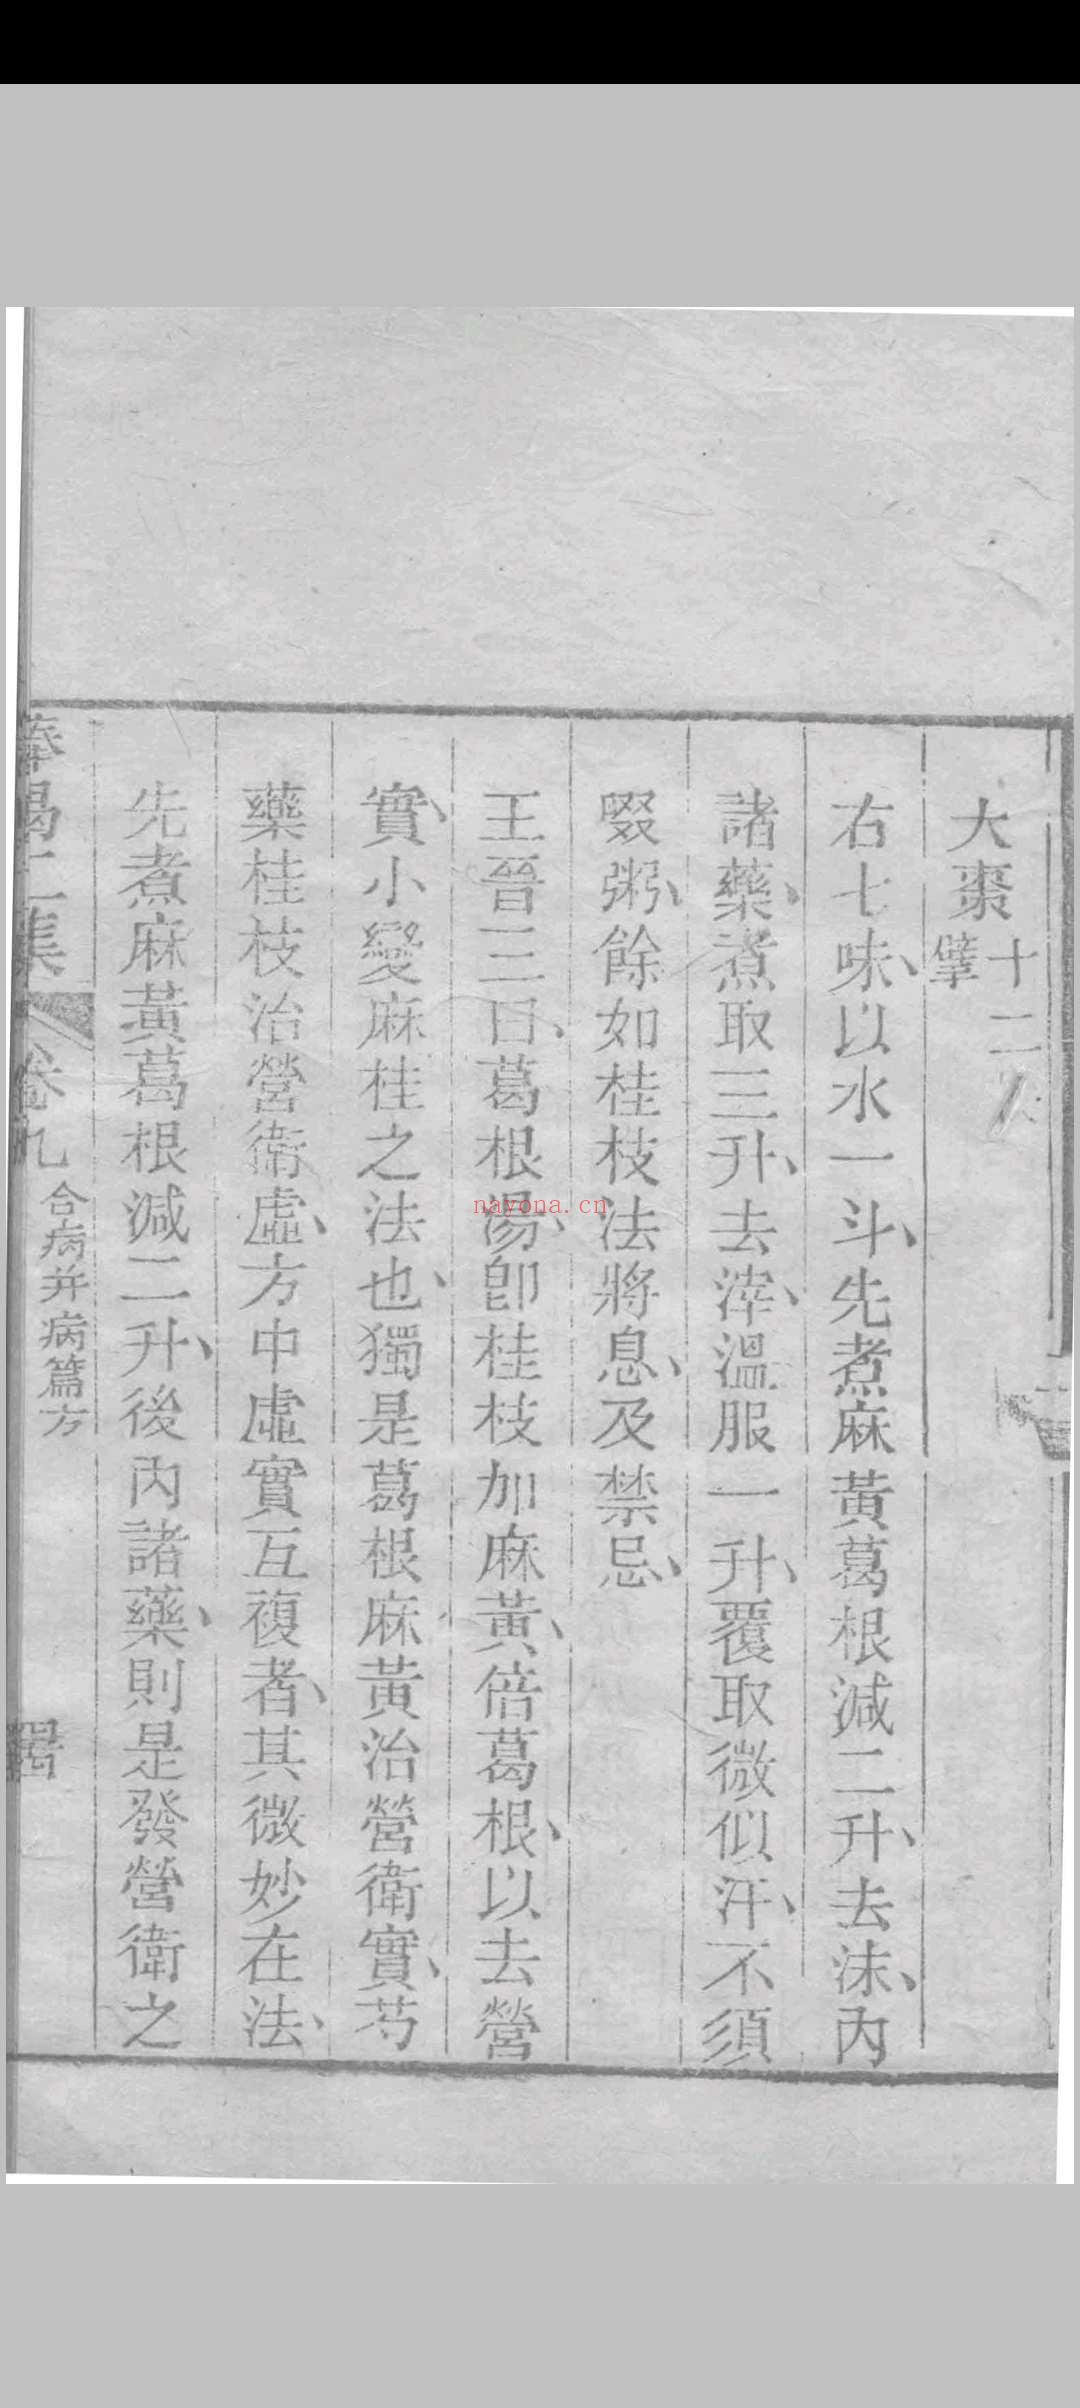 大棗十二枚擘
右七味以水一斗先煮麻黃葛根減二升去沫內
諸藥煮取三升去滓溫服一升覆取微似汗不須
啜粥餘如桂枝法將息及禁忌
王晉三曰葛根湯卽桂枝加麻黃倍葛根以去營
實小變麻桂之法也獨是葛根麻黃治營衛實芍
藥桂枝治營衛虛方中虛實互複者其微妙在法
先煮麻黃葛根減二升後內諸藥則是發營衛之
集 卷九 合病并病篇方
nayona.cn